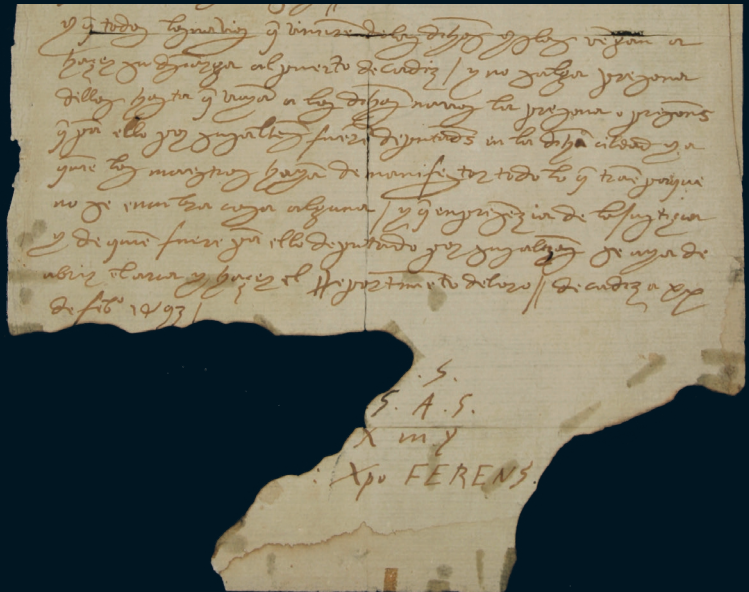 y q̃ todos los navios q̃ vinierē de las dichas yslas vēgan a
hazer su descarga al puerto de cadiz / y no salga presona
dellos hasta q̃ vayā a los dichos navios la presona o presonas
q̃ pa ello por su alteza fuerē deputados en la dicha cibdad y a
quiē los maestros hayā de manifestar todo lo q̃ traē porque
no se encubra cosa alguna / y q̃ en presēzia de la justiçia
y de quiē fuere pa ello deputado por su alteza se aya de
abrir el arca y hacer el Repartimēto del oro // de cadiz a xx
de feb° 1493 /
. S.
S. A. S.
X M Y
: Xpo FERENS.